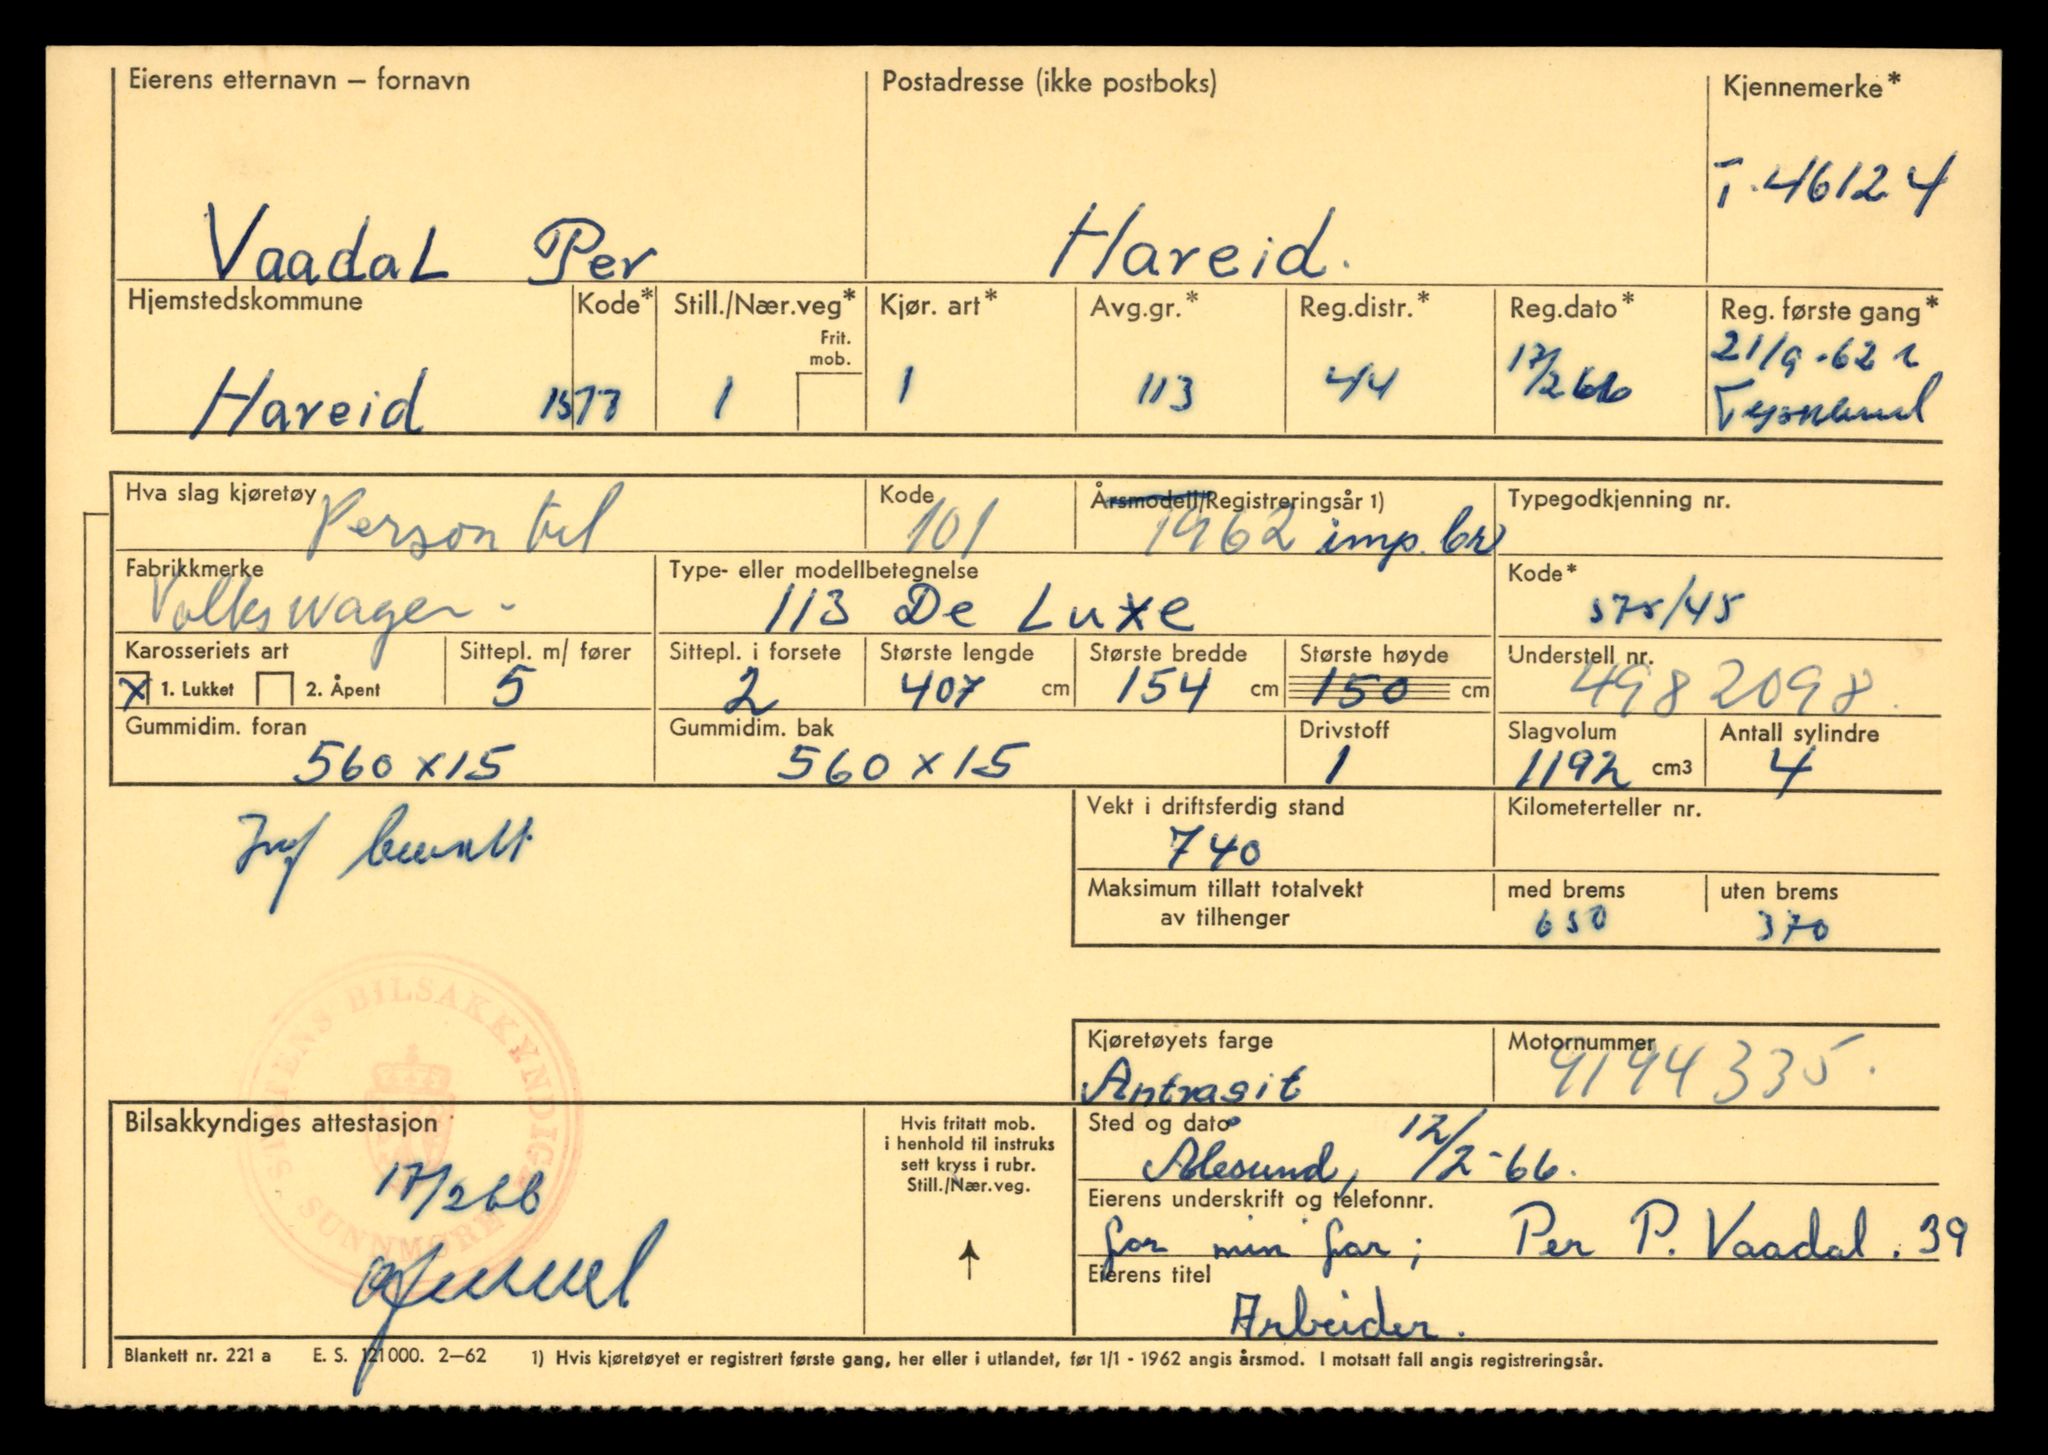 Eierens etternavn – fornavn
Postadresse (ikke postboks)
Kjennemerke*
T-46124
Vaadal Per
Hareid.
Hjemstedskommune
Kode*
Still./Nær.veg*
Frit. mob.
Kjør. art*
Avg.gr.*
Reg.distr.*
Reg.dato*
Reg. første gang*
Hareid
1
1
113
44
17/2 66
21/9-62 i
Tyskland
Hva slag kjøretøy
Kode
Årsmodell/Registreringsår 1)
Typegodkjenning nr.
Personbil
101
1962 imp. br
Fabrikkmerke
Type- eller modellbetegnelse
Kode*
Volkswagen
113 De Luxe
375/45
Karosseriets art
Sittepl. m/ fører
Sittepl. i forsete
Største lengde
Største bredde
Største høyde
Understell nr.
X 1. Lukket 2. Åpent
5
2
407 cm
154 cm
150 cm
4982098.
Gummidim. foran
Gummidim. bak
Drivstoff
Slagvolum
Antall sylindre
560 x 15
560 x 15
1
1192 cm3
4
Vekt i driftsferdig stand
Kilometerteller nr.
740
Maksimum tillatt totalvekt
av tilhenger
med brems
uten brems
650
370
STATENS BILSAKKYNDIGE
SUNNMØRE
Kjøretøyets farge
Motornummer
Antrasit
Bilsakkyndiges attestasjon
17/2 66
Hvis fritatt mob.
i henhold til instruks
sett kryss i rubr.
Still./Nær.veg.
Sted og dato
Ålesund, 17/2-66.
Eierens underskrift og telefonnr.
for min far; Per P. Vaadal. 39
Eierens titel
Arbeider.
Blankett nr. 221 a E. S. 121000. 2–62 1) Hvis kjøretøyet er registrert første gang, her eller i utlandet, før 1/1 - 1962 angis årsmod. I motsatt fall angis registreringsår.